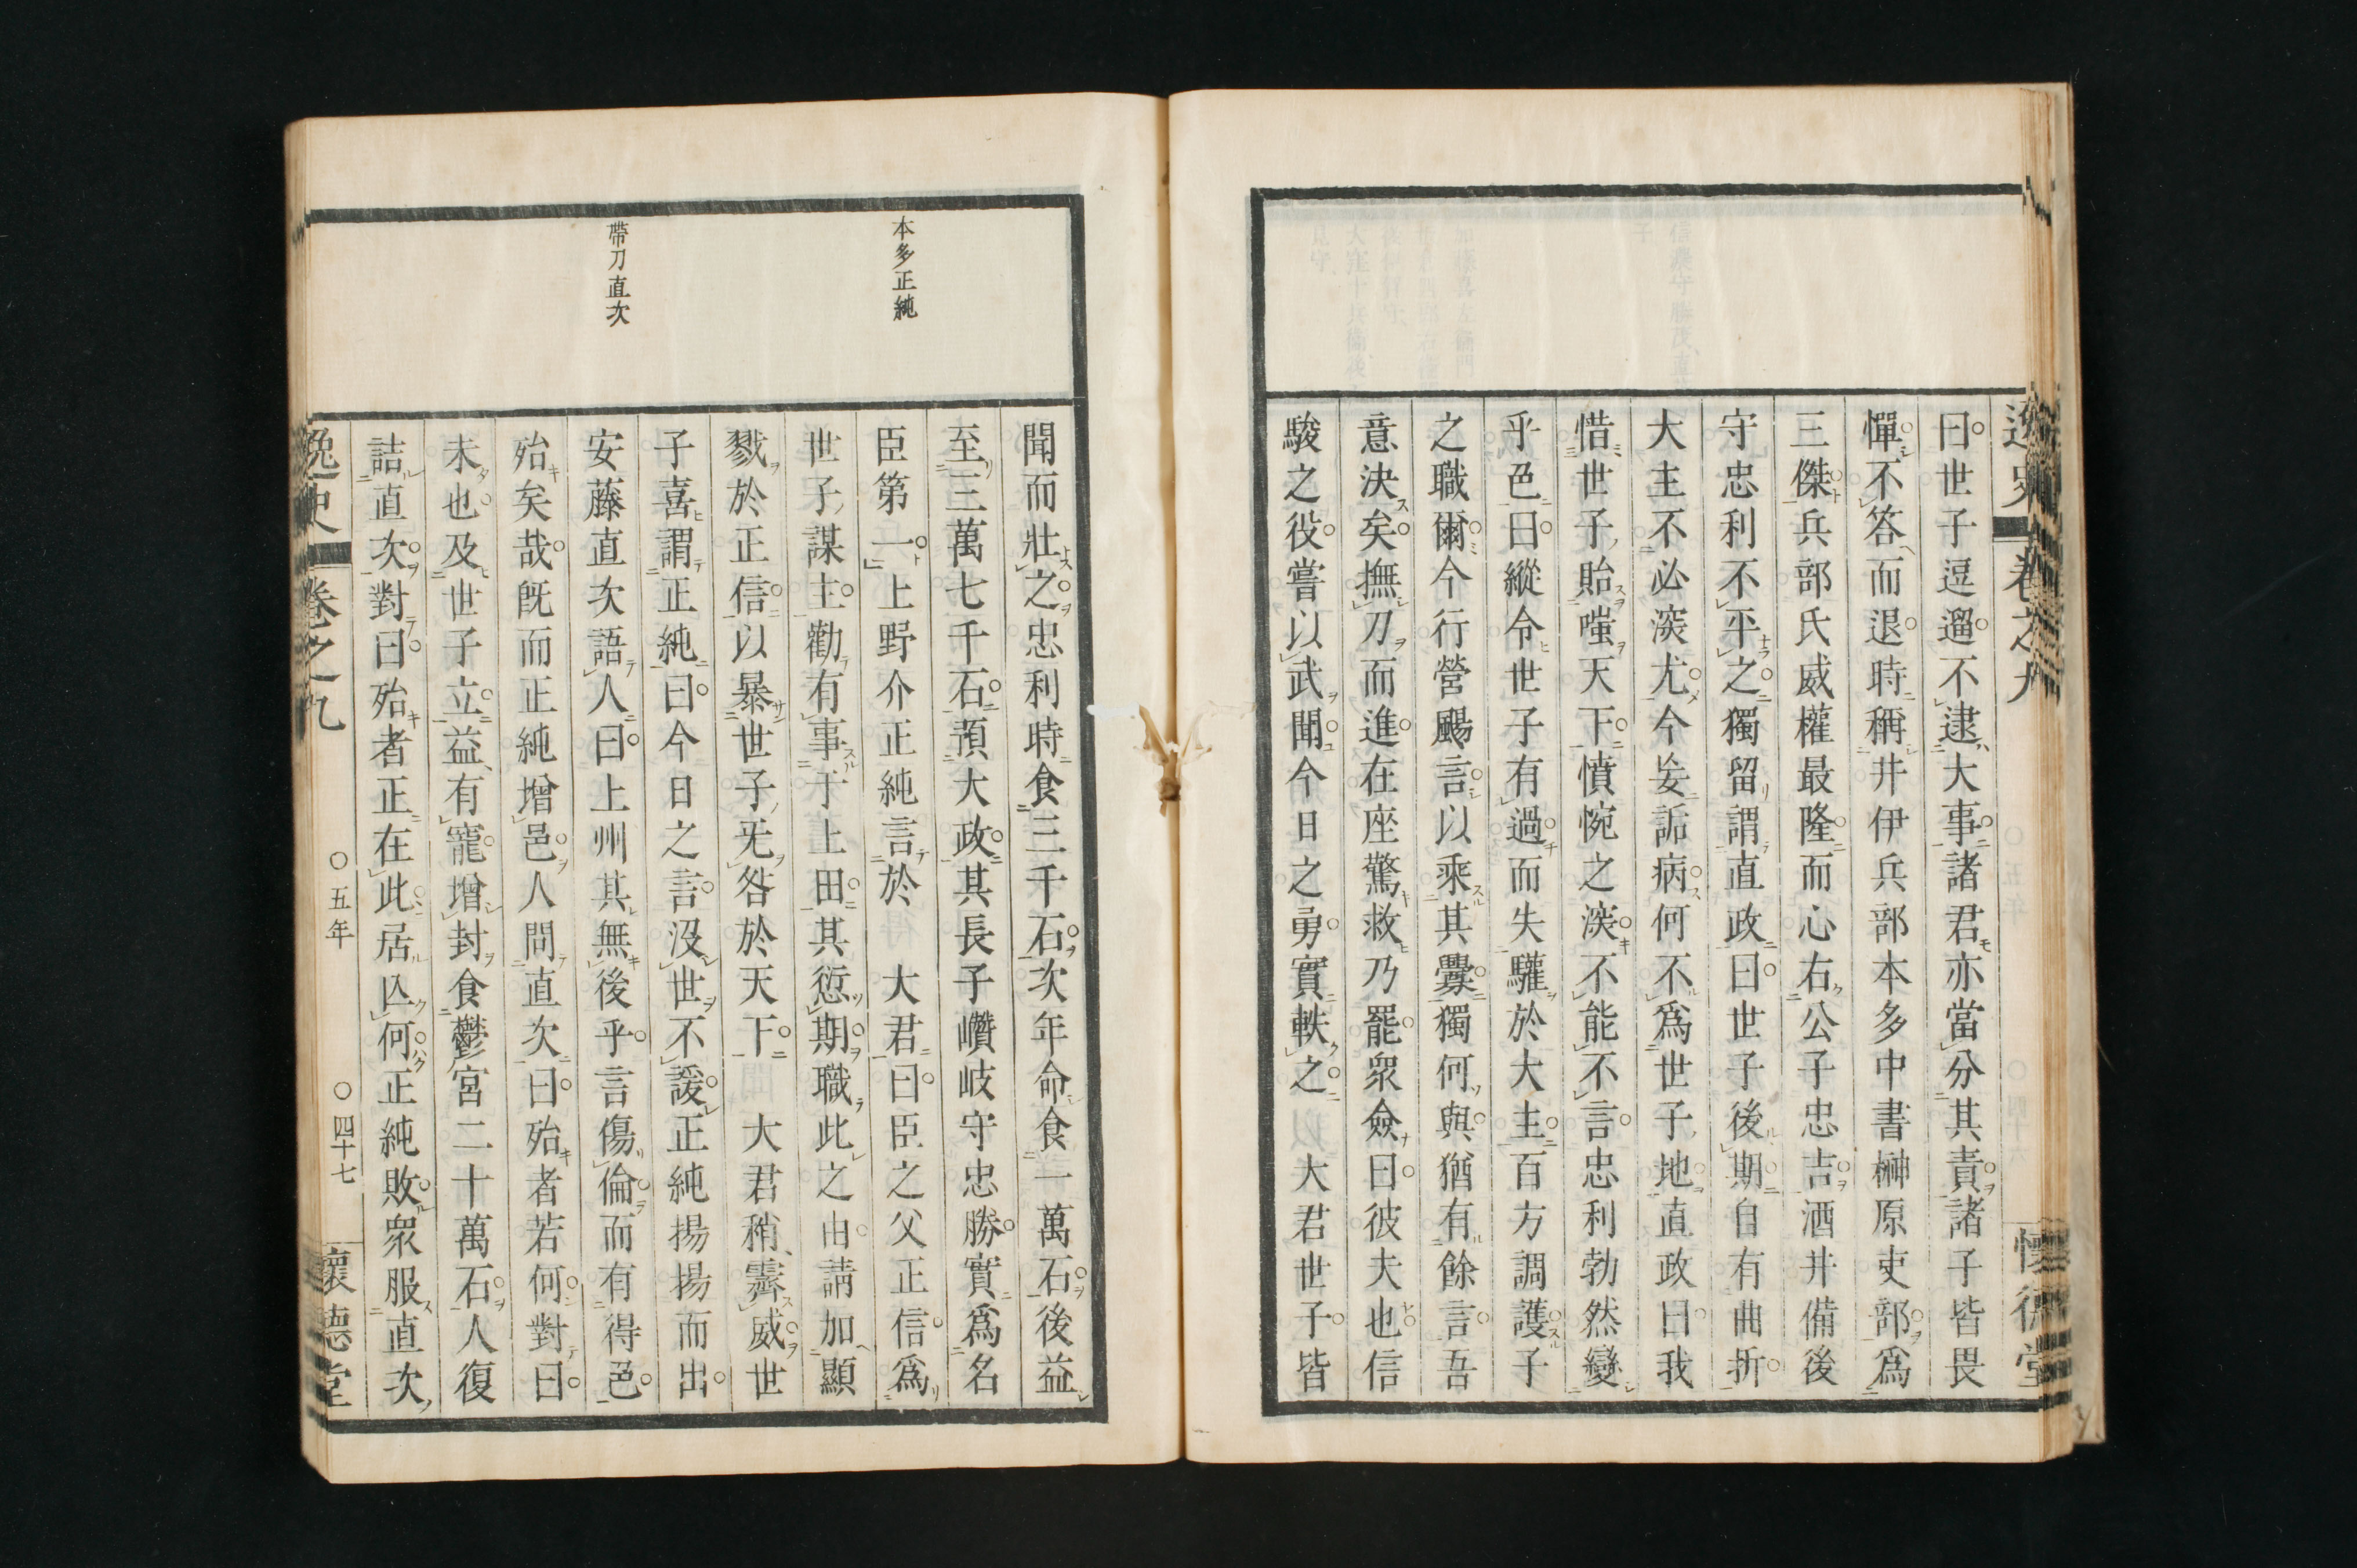 逸史 卷之九 懷德堂
曰世子逗遛不逮大事諸君亦當分其責諸子皆畏
憚不答而退時稱井伊兵部本多中書榊原吏部爲
三傑兵部氏威權最隆而心右公子忠吉酒井備後
守忠利不平之獨留謂直政曰世子後期自有曲折
大主不必深尤今妄詬病何不爲世子地直政曰我
惜世子貽嗤天下憤惋之深不能不言忠利勃然變
乎色曰縱令世子有過而失驩於大主百方調護子
之職爾今行營颺言以乘其釁獨何與猶有餘言吾
意決矣撫刀而進在座驚救乃罷衆僉曰彼夫也信
駿之役嘗以武聞今日之勇實軼之 大君世子皆
聞而壯之忠利時食三千石次年命食一萬石後益
至三萬七千石預大政其長子讚岐守忠勝實爲名
臣第一上野介正純言於 大君曰臣之父正信爲
世子謀主勸有事于上田其愆期職此之由請加顯
戮於正信以暴世子无咎於天下 大君稍霽威世
子喜謂正純曰今日之言沒世不諼正純揚揚而出
安藤直次語人曰上州其無後乎言傷倫而有得邑
殆矣哉既而正純增邑人問直次曰殆者若何對曰
未也及世子立益有寵增封食鬱宮二十萬石人復
詰直次對曰殆者正在此居亾何正純敗衆服直次
本多正純
帶刀直次
逸史 卷之九 ○五年 ○四十七 懷德堂